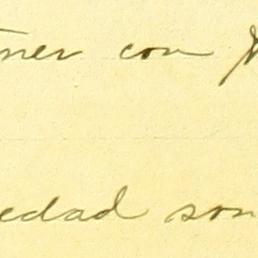 ner con
edad son